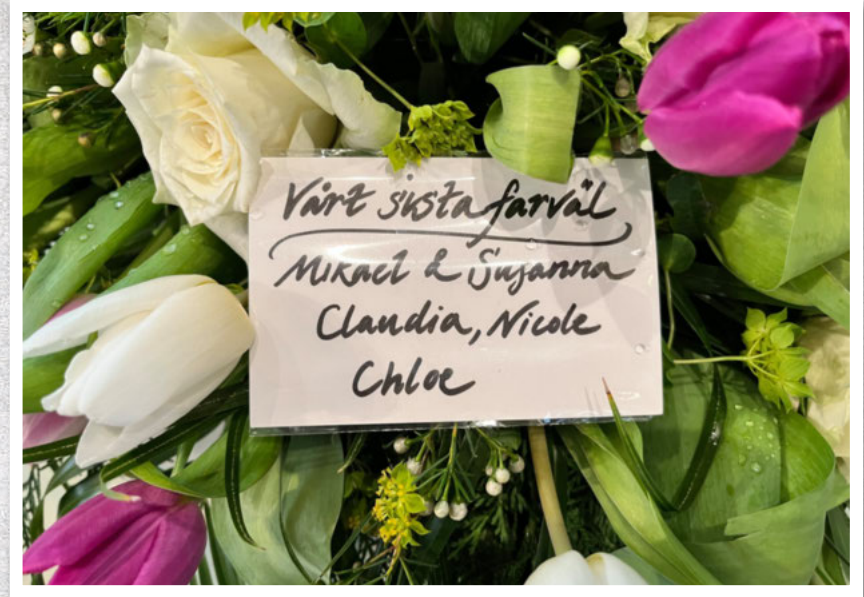 Vårt sista farväl
Mikael & Susanna
Claudia, Nicole
Chloe